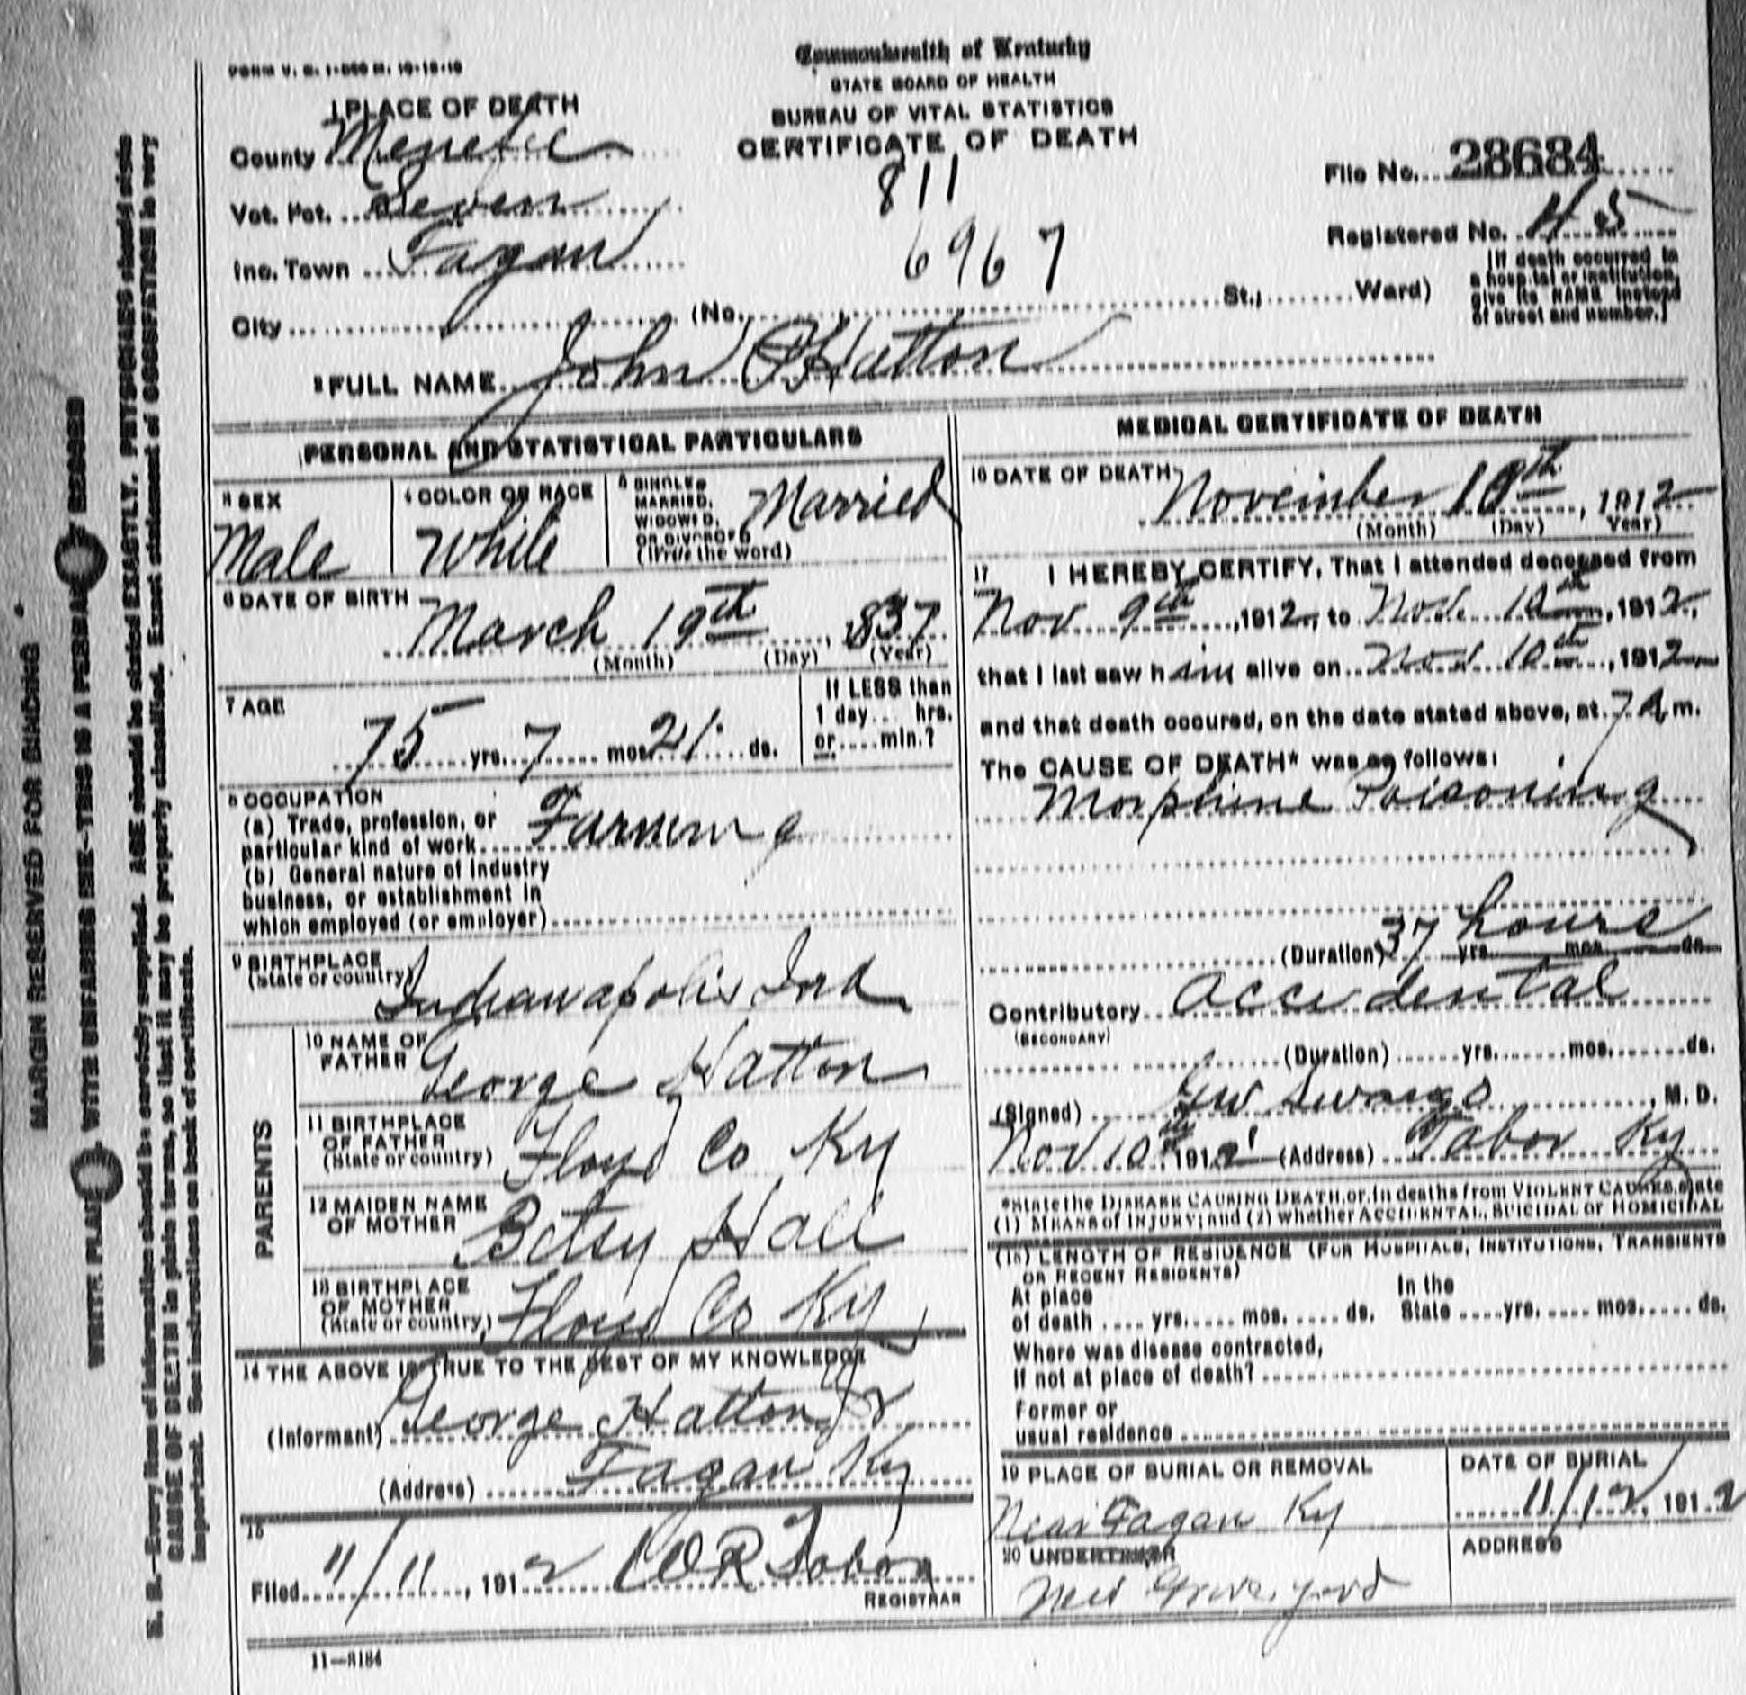 FORM V. S. 1-500 M. 10-18-10
Commonwealth of Kentucky
STATE BOARD OF HEALTH
BUREAU OF VITAL STATISTICS
CERTIFICATE OF DEATH
1 PLACE OF DEATH
County Menefee
Vot. Pct. Seven
Inc. Town Fagan
City (No. St., Ward)
811
6967
File No. 28684
Registered No. 45
[If death occurred in
a hospital or institution,
give its NAME instead
of street and number.]
2 FULL NAME John Hatton
PERSONAL AND STATISTICAL PARTICULARS
3 SEX
Male
4 COLOR OR RACE
White
5 SINGLE,
MARRIED,
WIDOWED,
OR DIVORCED
(Write the word)
Married
6 DATE OF BIRTH
March 19th, 1837
(Month) (Day) (Year)
7 AGE
75 yrs. 7 mos. 21 ds.
If LESS than
1 day... hrs.
or.... min.?
8 OCCUPATION
(a) Trade, profession, or
particular kind of work Farming
(b) General nature of Industry
business, or establishment in
which employed (or employer)
9 BIRTHPLACE
(State or country)
Indianapolis Ind
PARENTS
10 NAME OF
FATHER
George Hatton
11 BIRTHPLACE
OF FATHER
(State or country)
Floyd Co Ky
12 MAIDEN NAME
OF MOTHER
Betsy Hall
13 BIRTHPLACE
OF MOTHER
(State or country)
Floyd Co Ky
14 THE ABOVE IS TRUE TO THE BEST OF MY KNOWLEDGE
(Informant) George Hatton Jr
(Address) Fagan Ky
15
Filed 11/11, 1912
REGISTRAR
11-8184
MEDICAL CERTIFICATE OF DEATH
16 DATE OF DEATH
November 10th, 1912
(Month) (Day) Year)
17 I HEREBY CERTIFY, That I attended deceased from
Nov 9th, 1912, to Nov. 10th, 1912,
that I last saw h im alive on Nov 10th, 1912
and that death occured, on the date stated above, at 7 A. m.
The CAUSE OF DEATH* was as follows:
Morphine Poisoning
(Duration) 37 hours yrs. mos. ds.
Contributory Accidental
(SECONDARY)
(Duration) yrs. mos. ds.
(Signed) M. D.
Nov 10th 1912 (Address) Tabor Ky
*State the DISEASE CAUSING DEATH, or, in deaths from VIOLENT CAUSES, state
(1) MEANS of INJURY; and (2) whether ACCIDENTAL, SUICIDAL or HOMICIDAL
(18) LENGTH OF RESIDENCE (FOR HOSPITALS, INSTITUTIONS, TRANSIENTS
OR RECENT RESIDENTS)
At place
of death yrs. mos. ds.
In the
State yrs. mos. ds.
Where was disease contracted,
If not at place of death?
Former or
usual residence
19 PLACE OF BURIAL OR REMOVAL
Near Fagan Ky
DATE OF BURIAL
11/12, 1912
20 UNDERTAKER
ADDRESS
MARGIN RESERVED FOR BINDING
WRITE PLAINLY, WITH UNFADING INK—THIS IS A PERMANENT RECORD
N. B.—Every item of information should be carefully supplied. AGE should be stated EXACTLY. PHYSICIANS should state
CAUSE OF DEATH in plain terms, so that it may be properly classified. Exact statement of OCCUPATION is very
important. See instructions on back of certificate.